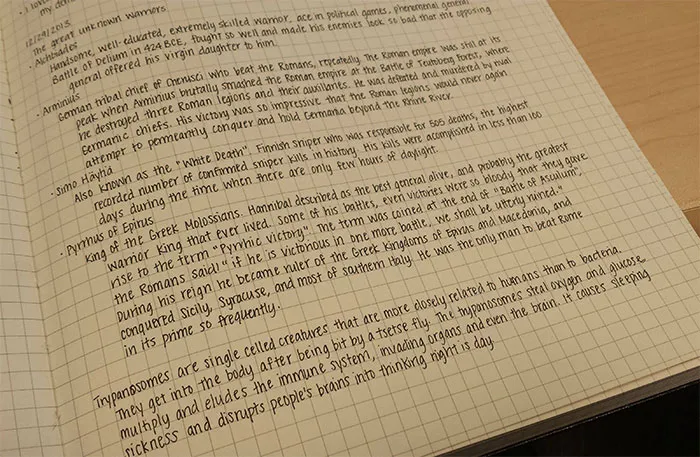 · I
my
12/29/2015.
The great unknown warriors.
· Alchibiades
Handsome, well-educated, extremely skilled warrior, ace in political games, phenomenal general.
Battle of Delium in 424 BCE, fought so well and made his enemies look so bad that the opposing
general offered his virgin daughter to him.
· Arminius
German tribal chief of Cherusci who beat the Romans, repeatedly. The Roman empire was still at its
peak when Arminius brutally smashed the Roman empire at the Battle of Teutoberg Forest, where
he destroyed three Roman legions and their auxiliaries. He was defeated and murdered by rival
Germanic chiefs. His victory was so impressive that the Roman legions would never again
attempt to permeantly conquer and hold Germania beyond the Rhine River.
· Simo Häyhä
Also known as the "White Death". Finnish sniper who was responsible for 505 deaths, the highest
recorded number of confirmed sniper kills in history. His kills were accomplished in less than 100
days during the time when there are only few hours of daylight.
· Pyrrhus of Epirus
King of the Greek Molossians. Hannibal described as the best general alive, and probably the greatest
warrior king that ever lived. Some of his battles, even victories were so bloody that they gave
rise to the term "Pyrrhic victory". The term was coined at the end of "Battle of Asculum",
the Romans said " if he is victorious in one more battle, we shall be utterly ruined."
During his reign he became ruler of the Greek Kingdoms of Epirus and Macedonia, and
conquered Sicily, Syracuse, and most of southern Italy. He was the only man to beat Rome
in its prime so frequently.
Trypanosomes are single celled creatures that are more closely related to humans than to bacteria.
They get into the body after being bit by a tsetse fly. The trypanosomes steal oxygen and glucose
multiply and eludes the immune system, invading organs and even the brain. It causes sleeping
sickness and disrupts people's brains into thinking night is day.